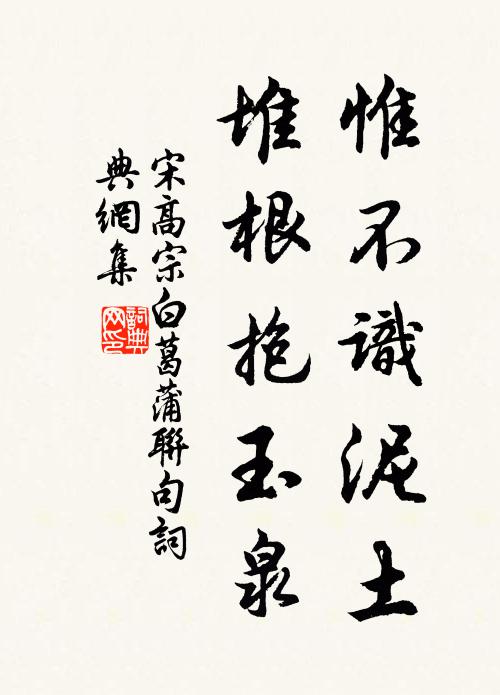 惟不識泥土
堆根抱玉泉
宋高宗白葛蒲聯句詞
典網集
詞典网印